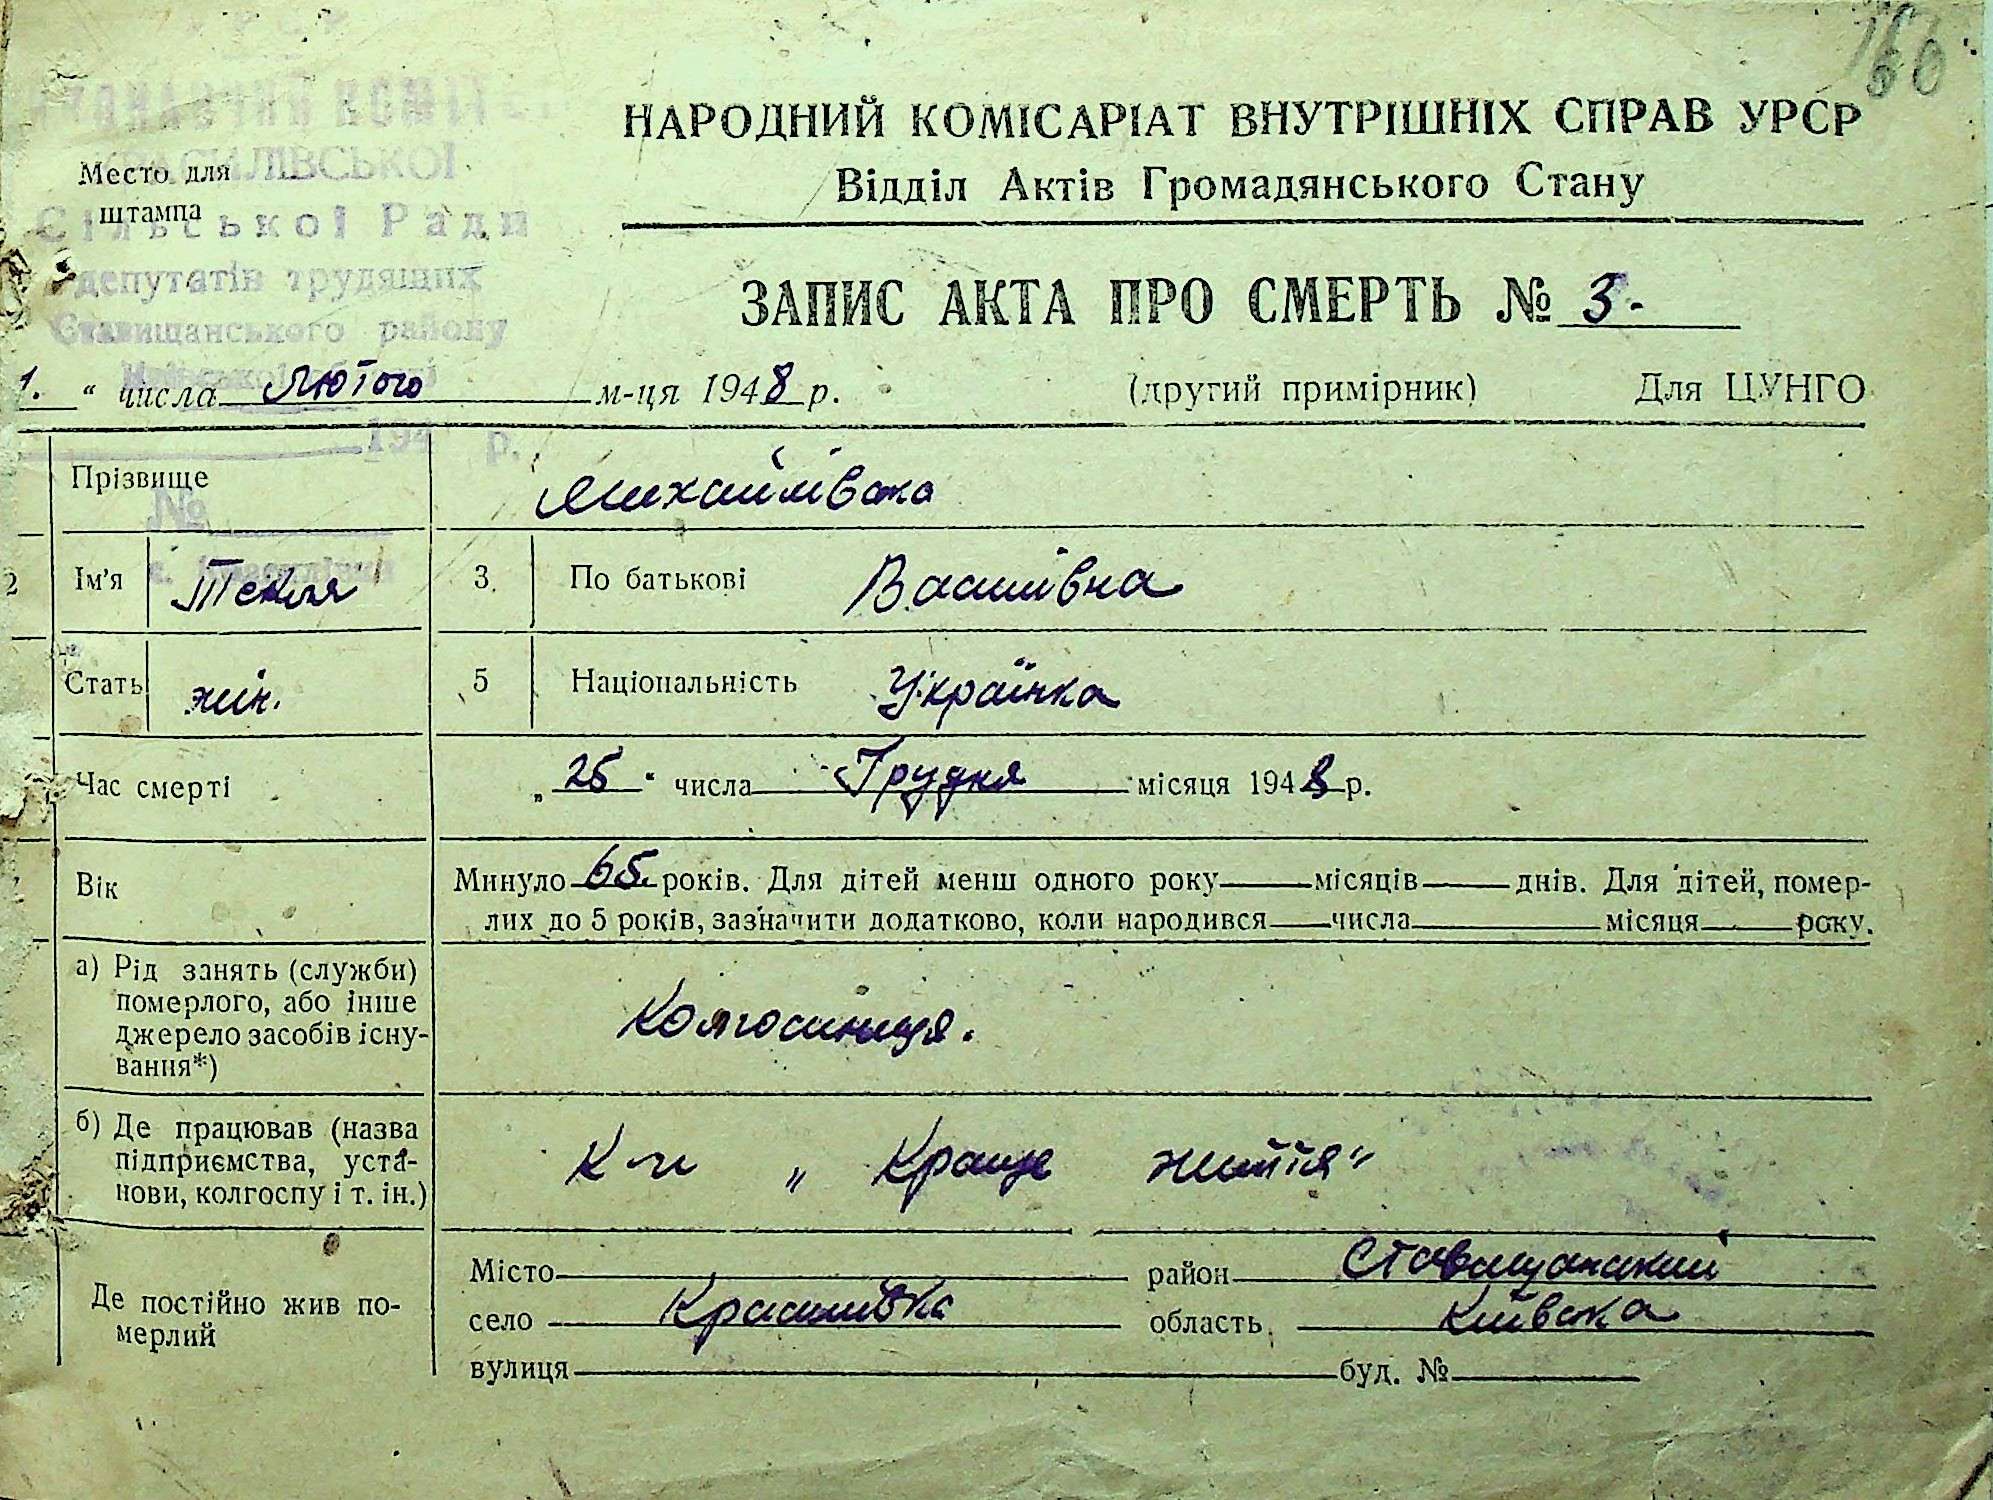 166
ВИКОНАВЧИЙ КОМІТЕТ
КРАСИЛІВСЬКОЇ
Сільської Ради
депутатів трудящих
Ставищанського району
194 р.
№
Место для
штампа
НАРОДНИЙ КОМІСАРІАТ ВНУТРІШНІХ СПРАВ УРСР
Відділ Актів Громадянського Стану
ЗАПИС АКТА ПРО СМЕРТЬ № 3-
1. " числа Лютого м-ця 1948 р. (другий примірник) Для ЦУНГО
Прізвище Михайлівська
2 Ім'я Текля 3. По батькові Василівна
Стать жін. 5 Національність Українка
Час смерті „ 25 " числа Грудня місяця 1948 р.
Вік Минуло 65. років. Для дітей менш одного року місяців днів. Для дітей, помер-
лих до 5 років, зазначити додатково, коли народився числа місяця року.
а) Рід занять (служби)
померлого, або інше
джерело засобів існу-
вання*)
Колгосниця.
б) Де працював (назва
підприємства, уста-
нови, колгоспу і т. ін.)
К-п „ Краще життя"
Де постійно жив по-
мерлий
Місто район Ставищанський
село Красилівка область Київська
вулиця буд. №